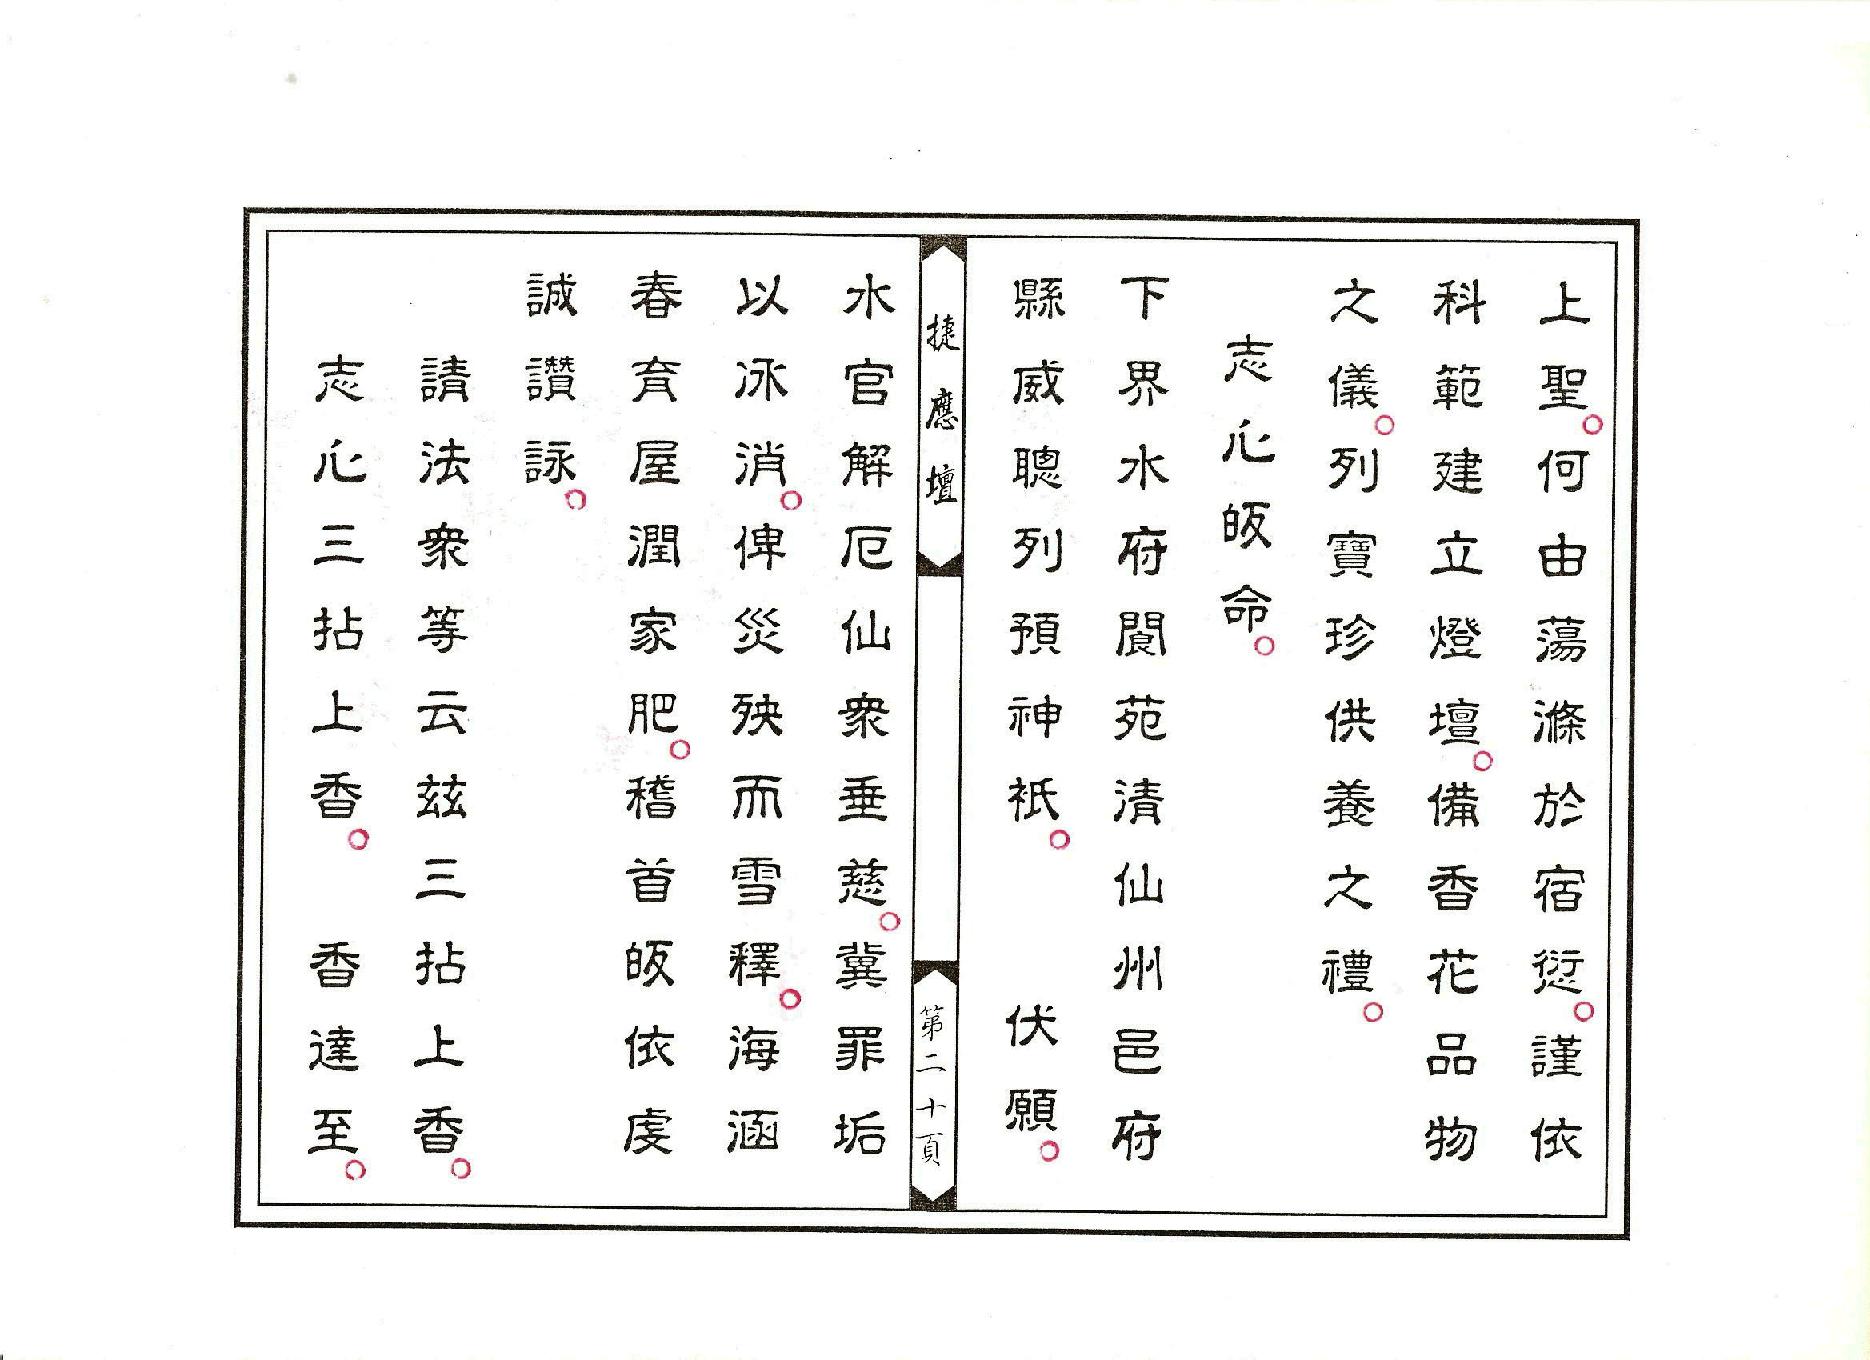 上聖。何由蕩滌於宿愆。謹依
科範建立燈壇。備香花品物
之儀。列寶珍供養之禮。
志心皈命。
下界水府閬苑清仙州邑府
縣威聰列預神祇。 伏願。
捷應壇
第二十頁
水官解厄仙衆垂慈。冀罪垢
以冰消。俾災殃而雪釋。海涵
春育屋潤家肥。稽首皈依虔
誠讚詠。
請法衆等云玆三拈上香。
志心三拈上香。 香達至。